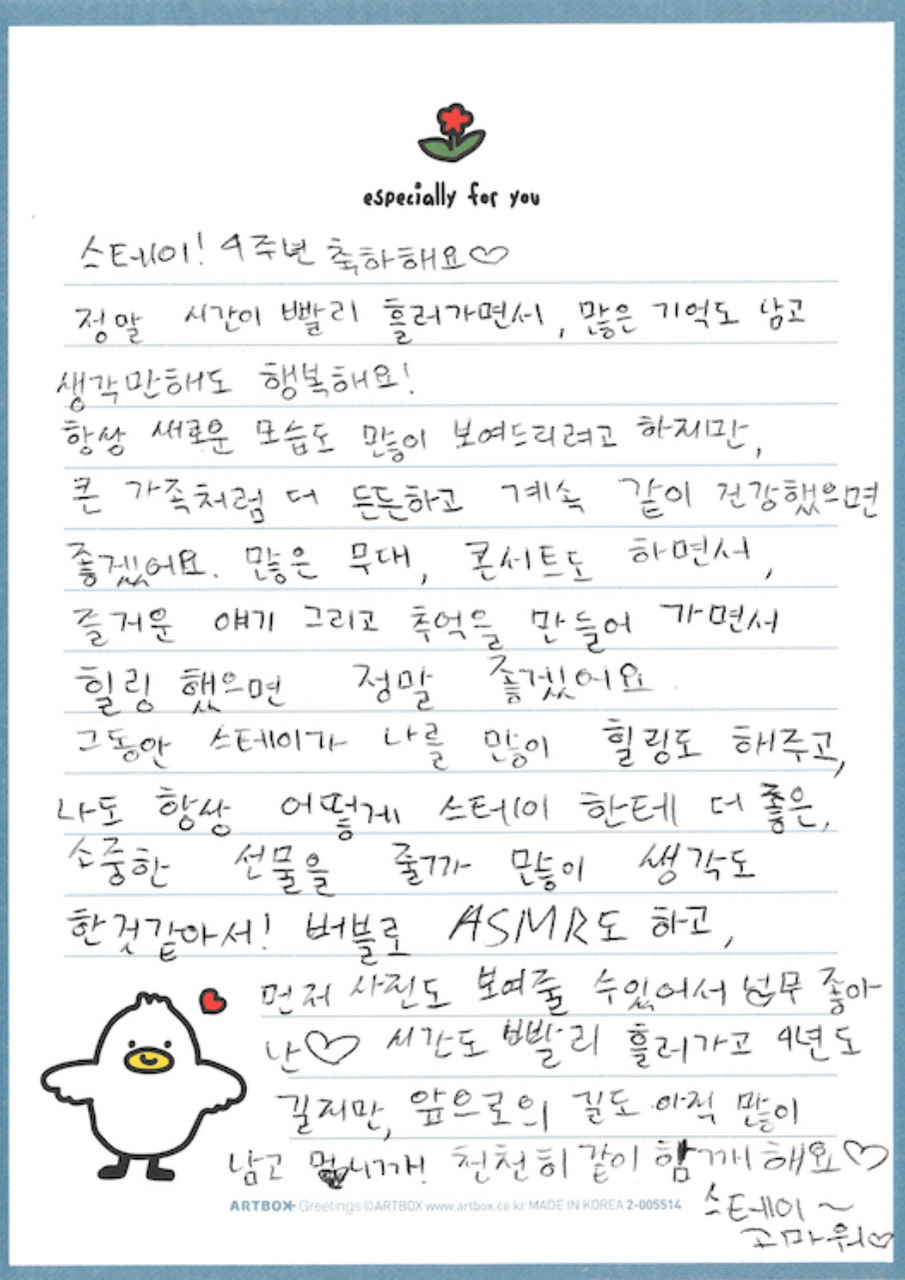 especially for you
스테이! 4주년 축하해요♡
정말 시간이 빨리 흘러가면서, 많은 기억도 남고
생각만해도 행복해요!
항상 새로운 모습도 많이 보여드리려고 하지만,
큰 가족처럼 더 든든하고 계속 같이 건강했으면
좋겠어요. 많은 무대, 콘서트도 하면서,
즐거운 얘기 그리고 추억을 만들어 가면서
힐링 했으면 정말 좋겠어요.
그동안 스테이가 나를 많이 힐링도 해주고,
나도 항상 어떻게 스테이 한테 더 좋은,
소중한 선물을 줄까 많이 생각도
한것같아서! 버블로 ASMR도 하고,
먼저 사진도 보여줄 수있어서 넘무 좋아
난♡ 시간도 빨리 흘러가고 4년도
길지만, 앞으로의 길도 아직 많이
남고 니까! 천천히 같이 함께 해요♡
스테이~
고마워♡
ARTBOX Greetings ©ARTBOX www.artbox.co.kr MADE IN KOREA 2-005514